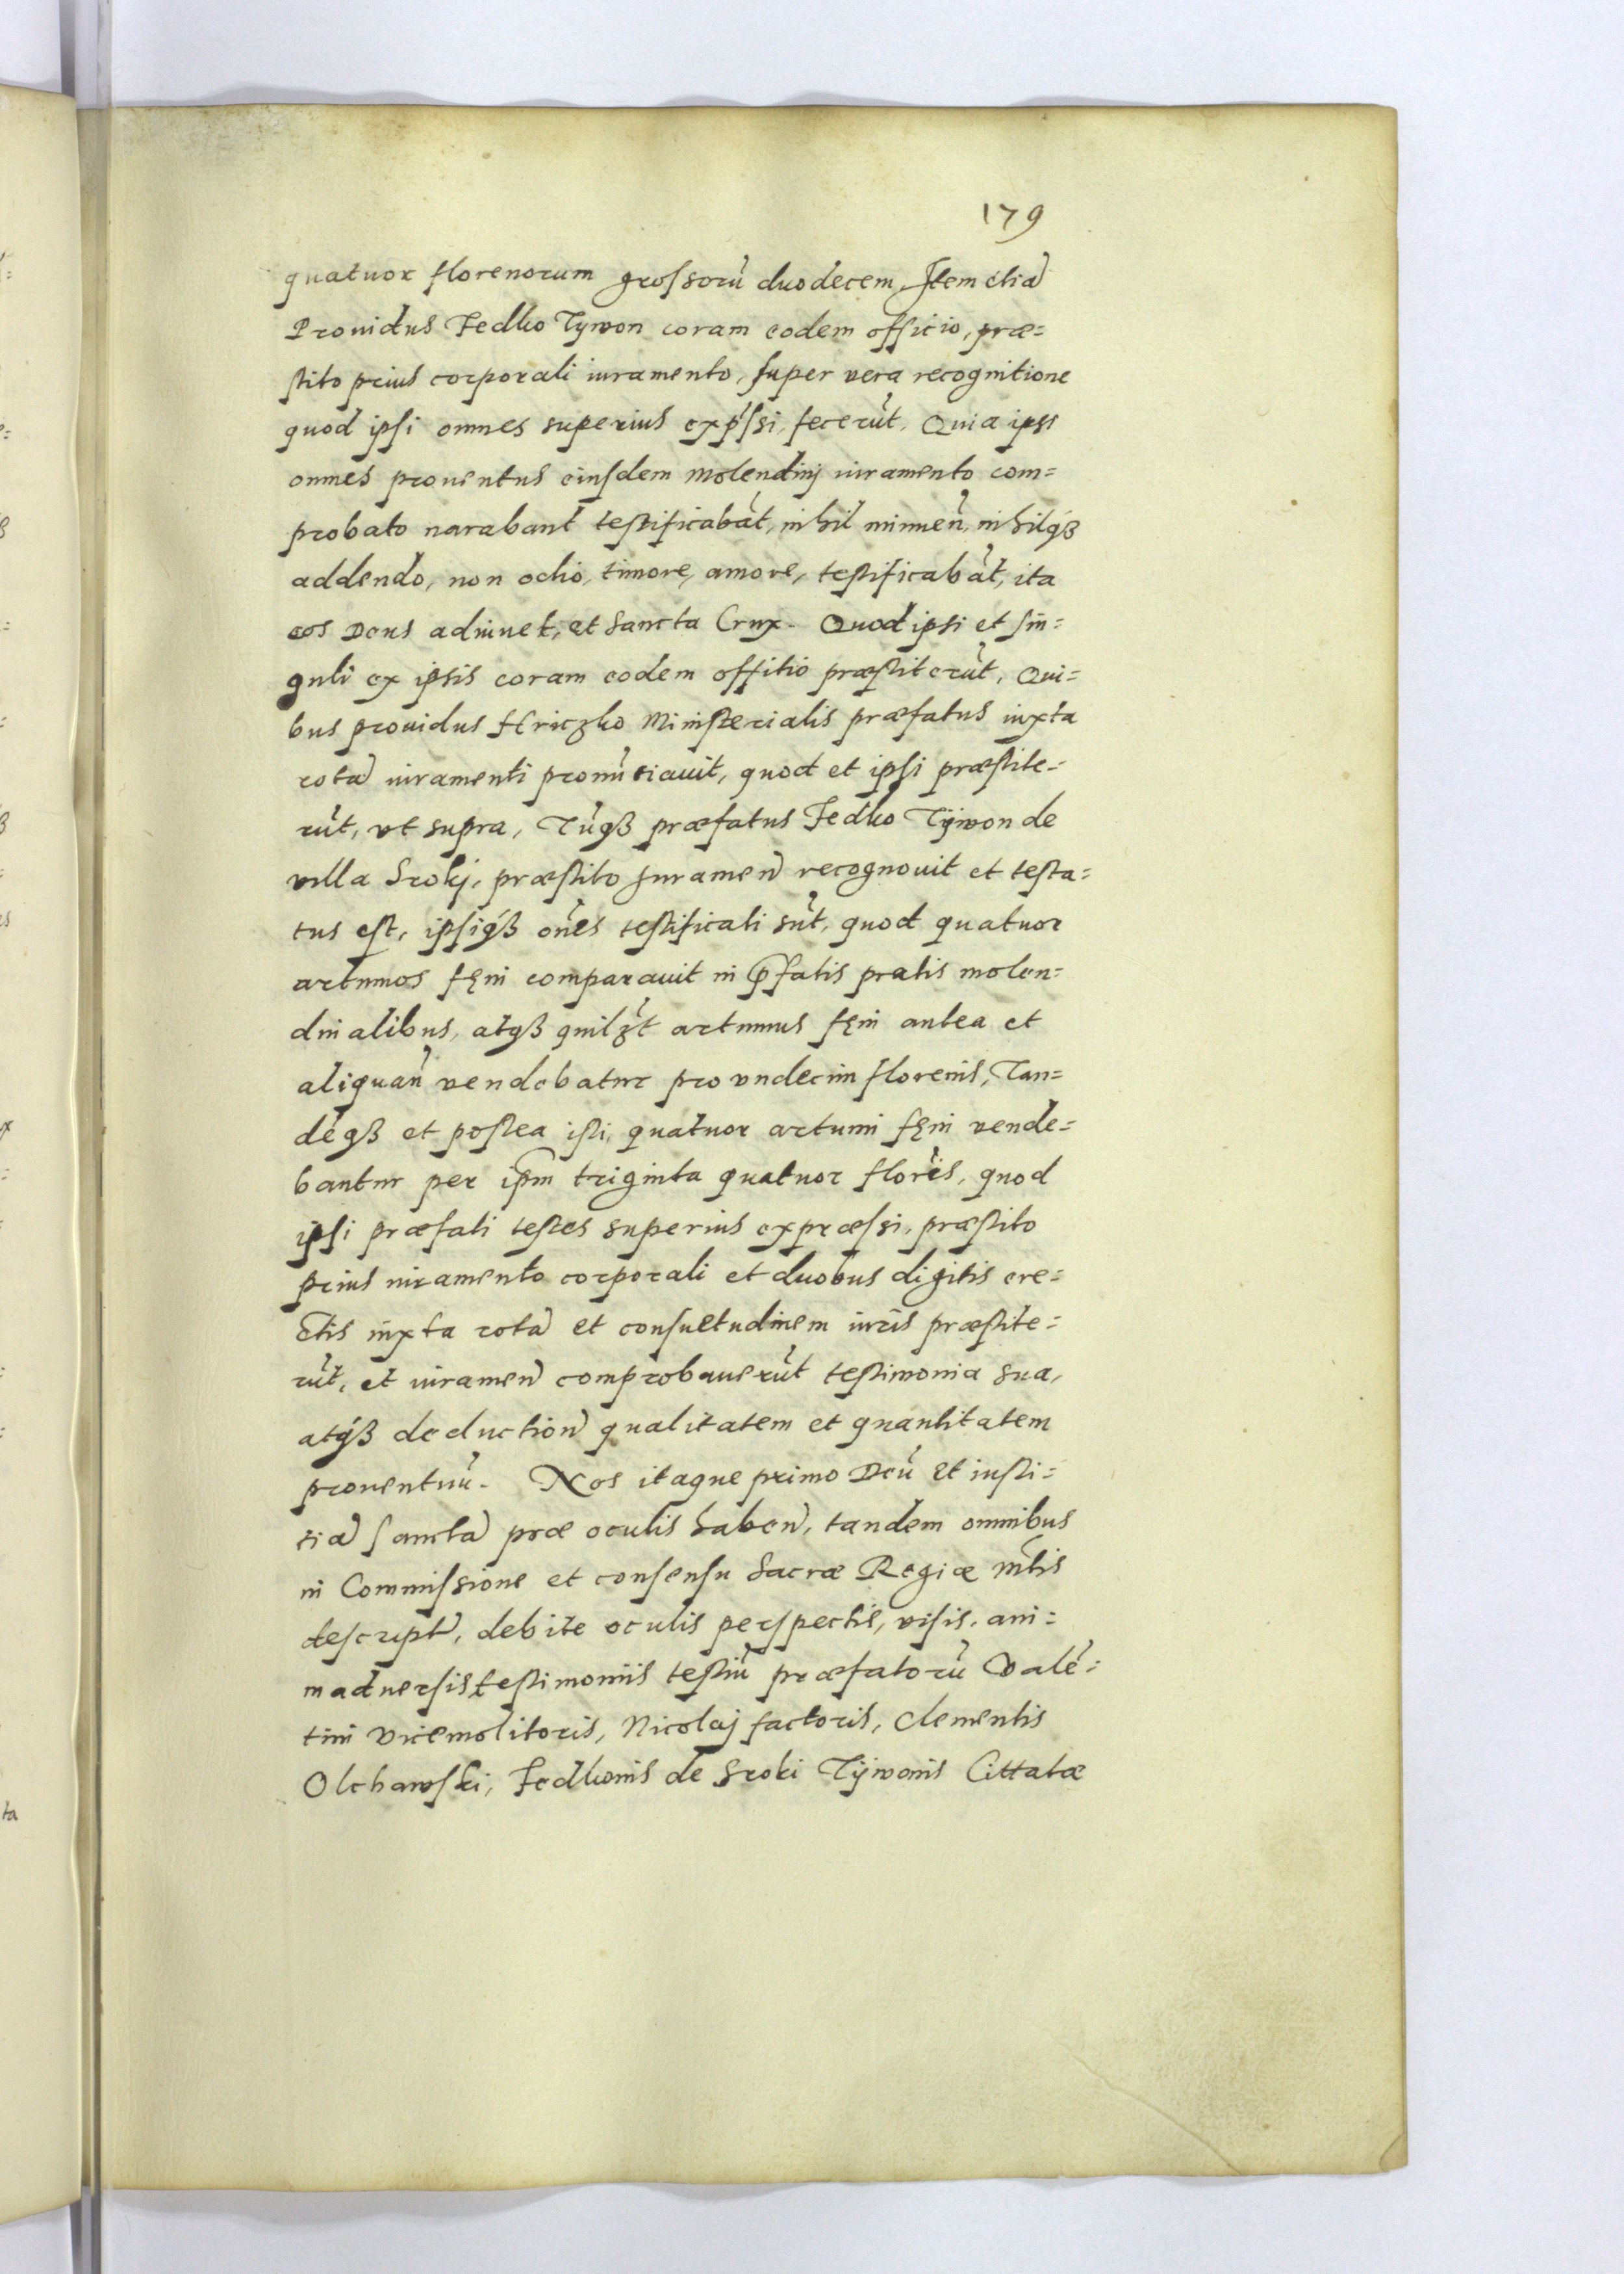 179
quatuor florenorum grossorũ duodecem, Item etiã
Prouidus Fedko Tywon coram eodem officio, præ=
stito prius corporali iuramento, super vera recognitione
quod ipsi omnes superius exp̃ssi, fecerũt, Quia ipsi
omnes prouentus eiusdem Molendinj iuramento com=
probato narabant testificabãt, nihil minueñ, nihilqȝ
addendo, non odio, timore, amore, testificabãt, ita
eos Deus adiuuet, et Sancta Crux. Quod ipsi et sin=
guli ex ipsis coram eodem offitio præstiterũt, Qui=
bus prouidus Hriczko Ministerialis præfatus iuxta
rotã iuramenti pronũtiauit, quod et ipsi præstite=
rũt, vt supra, Tũqȝ præfatus Fedko Tÿwon de
villa Srokj, præstito Iurameñ recognouit et testa=
tus est, ipsiqȝ oñes testificati sũt, quod quatuor
actumos fęni comparauit in p̃fatis pratis molen=
dinalibus, atqȝ quilȝt actumus fęni antea et
aliquañ vendebatur pro vndecim florenis, Tan=
dẽqȝ et postea isti, quatuor actumi fęni vende=
bantur per ip̃m triginta quatuor floris̃, quod
ipsi præfati testes superius expræssi, præstito
prius iuramento corporali et duobus digitis ere=
ctis iuxta rotã et consuetudinem iuris̃ præstite=
rũt, et iurameñ comprobauerũt testimonia sua,
atqȝ deductioñ qualitatem et quantitatem
prouentuũ. Nos itaque primo Deũ et iusti=
tiã sanctã præ oculis habeñ, tandem omnibus
in Commissione et consensu Sacræ Regiæ Mt̃is
descript̃, debite oculis perspectis, visis, ani=
maduersis testimoniis testiũ præfatorũ Valẽ=
tini Vicemolitoris, Nicolaj factoris, Clementis
Olchawski, Fedkonis de Sroki Tÿwonis Cittatæ